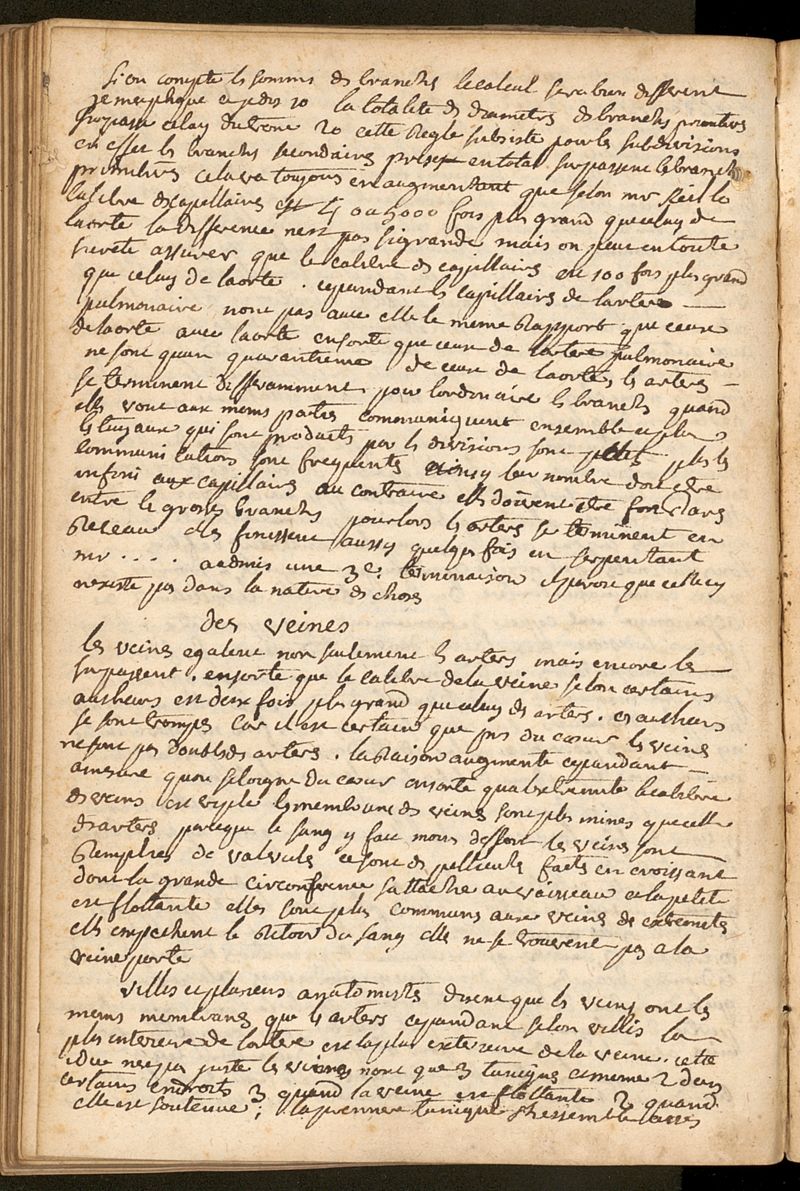 si on compte les sommes des branches le calcul sera bien different
je m'explique et je dis 1o la totalité des diametres des branches primitives
surpasse celuy du tronc 2o cette regle subsiste pour les subdivisions
en effet les branches secondaires prises en total surpassent les branches
primitives cela va toujours en augmentant que selon mr le
calibre des capillaires est 4 ou 5000 fois plus grand que celuy de
laorte la difference nest pas si grande mais on peut en toute
sureté assurer que le calibre des capillaires est 100 fois plus grand
que celuy de laorte . cependant les capillaires de lartere
pulmonaire nont pas avec elle le meme rapport que ceux
de laorte avec laorte ensorte que ceux de lartere pulmonaire
ne sont quun quarantieme de ceux de laorte les arteres
se terminent differamment pour lordonaire les branches quand
elles vont aux memes parties communiquent ensemble et plus
les tuyaux qui sont produits par les divisions sont petits plus les
communications sont frequentes ainsy leur nombre doit etre
infini aux capillaires au contraire elles doivent etre fort rares
entre les grosses branches pour lors les arteres se terminent en
reseau elles finissent aussy quelques fois en serpentant
mr . . . . a admis une 3e. terminaison il paroit que celle cy
nexiste pas dans la nature des choses
des veines
les veines egalent non seulement les arteres mais encore les
surpassent . ensorte que le calibre de la veine selon certains
autheurs est deux fois plus grand que celuy des arteres . ces autheurs
se sont trompes car il est certain que pres du coeur les veines
ne sont pas doubles des arteres . la raison augmente cependant
a mesure quon seloigne du coeur ensorte qua lextremité le calibre
des veines est triple les membranes des veines sont plus minces que celle
des arteres parceque le sang y fait moins deffort les veines sont
remplies de valvules ce sont des pellicules faites en croissant
dont la grande circonference sattache au vaisseau et la petite
est flottante elles sont plus communes aux veines des extremités
elles empechent le retour du sang elles ne se trouvent pas a la
veine porte
villis et plusieurs anatomistes disent que les veines ont les
memes membranes que les arteres cependant selon villis la
plus interieure de lartere est la plus exterieure de la veine . cette
idée nest pas juste les veines nont que 3 tuniques et meme 2 dans
certains endroits 3 quand la veine est flottante 2 quand
elle est soutenue ; la premiere tunique ressemble asses